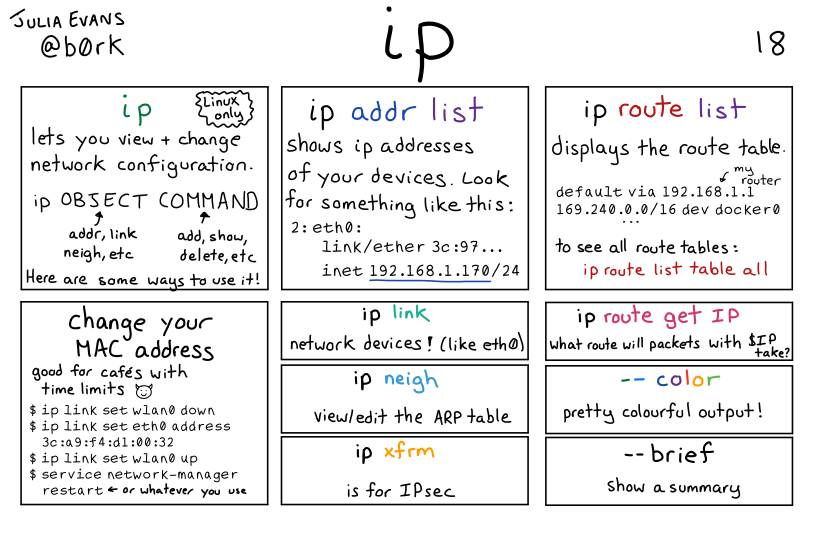 JULIA EVANS
@b0rk
ip
18
ip
Linux
only
lets you view + change
network configuration.
ip OBJECT COMMAND
addr, link
neigh, etc
add, show,
delete, etc
Here are some ways to use it!
ip addr list
shows ip addresses
of your devices. Look
for something like this:
2: eth0:
link/ether 3c:97...
inet 192.168.1.170/24
ip route list
displays the route table.
my
router
default via 192.168.1.1
169.240.0.0/16 dev docker0
...
to see all route tables:
ip route list table all
change your
MAC address
good for cafés with
time limits
$ ip link set wlan0 down
$ ip link set eth0 address
3c:a9:f4:d1:00:32
$ ip link set wlan0 up
$ service network-manager
restart ← or whatever you use
ip link
network devices! (like eth0)
ip neigh
view/edit the ARP table
ip xfrm
is for IPsec
ip route get IP
what route will packets with $IP
take?
-- color
pretty colourful output!
--brief
show a summary